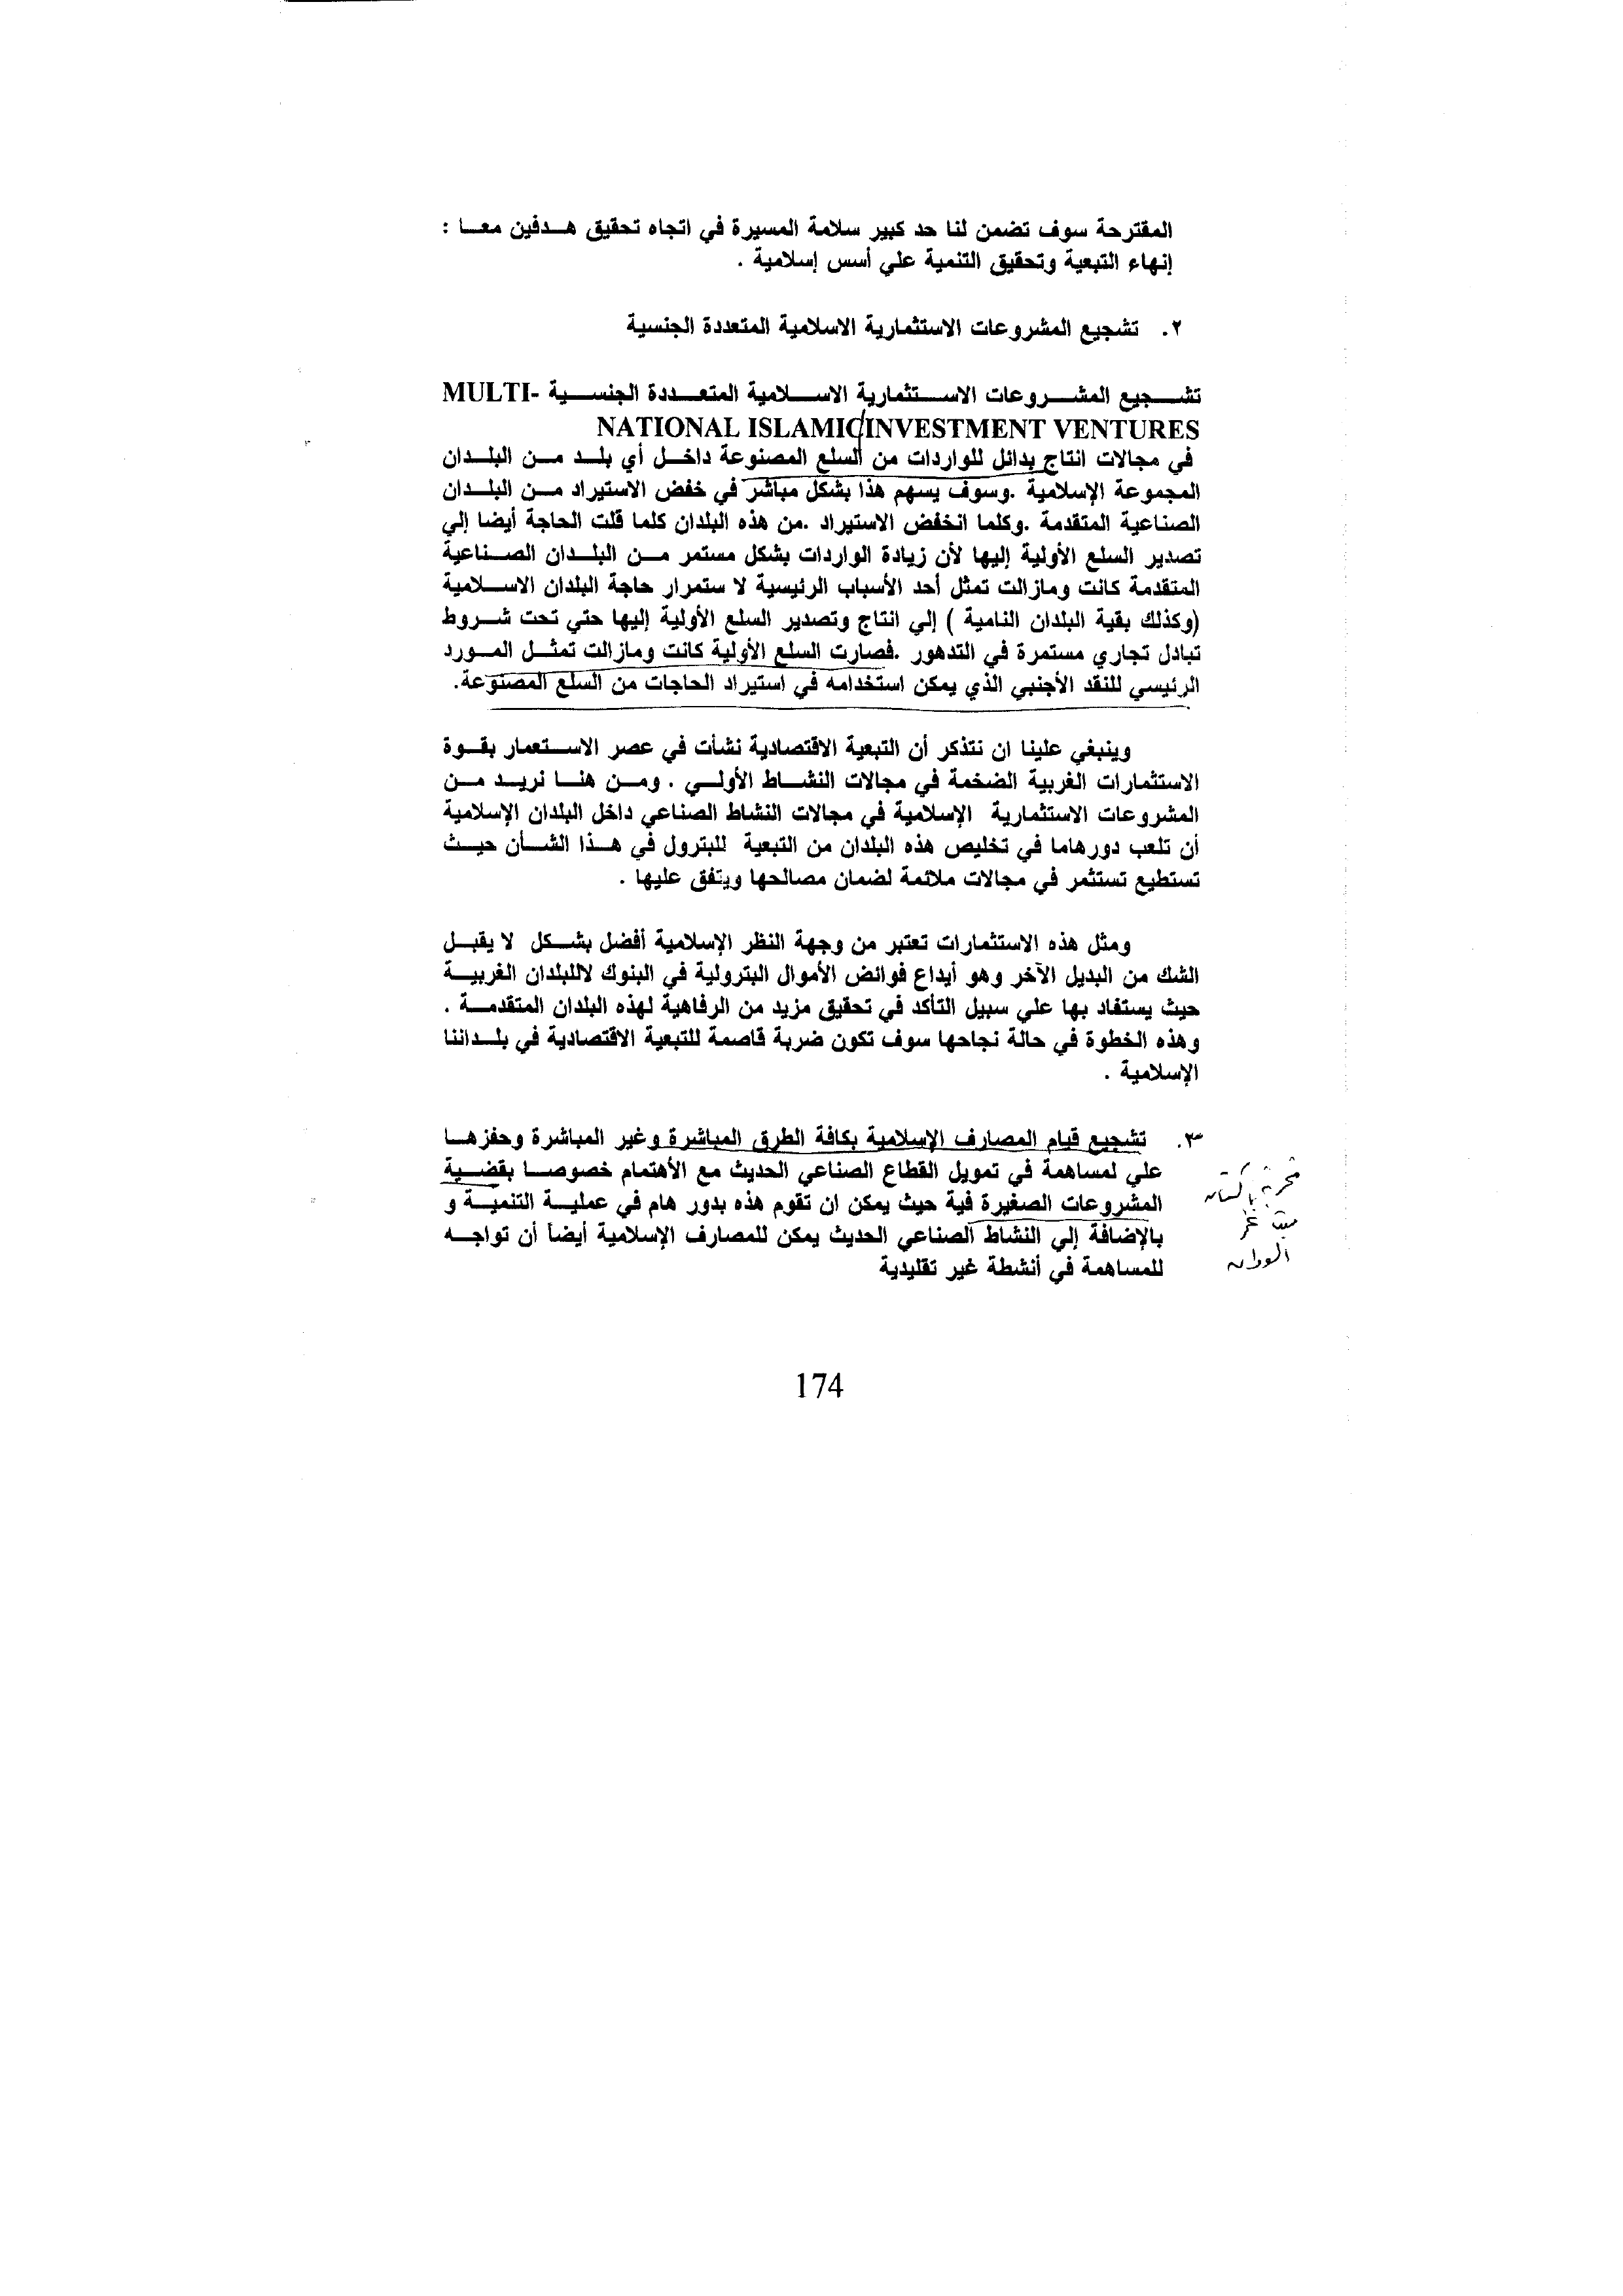 المقترحة سوف تضمن لنا حد كبير سلامة المسيرة في اتجاه تحقيق هدفين معا :
إنهاء التبعية وتحقيق التنمية علي أسس إسلامية .
٢. تشجيع المشروعات الاستثمارية الاسلامية المتعددة الجنسية
تشجيع المشروعات الاستثمارية الاسلامية المتعددة الجنسية MULTI-
NATIONAL ISLAMIC INVESTMENT VENTURES
في مجالات انتاج بدائل للواردات من السلع المصنوعة داخل أي بلد من البلدان
المجموعة الإسلامية .وسوف يسهم هذا بشكل مباشر في خفض الاستيراد من البلدان
الصناعية المتقدمة .وكلما انخفض الاستيراد .من هذه البلدان كلما قلت الحاجة أيضا إلي
تصدير السلع الأولية إليها لأن زيادة الواردات بشكل مستمر من البلدان الصناعية
المتقدمة كانت ومازالت تمثل أحد الأسباب الرئيسية لا ستمرار حاجة البلدان الاسلامية
(وكذلك بقية البلدان النامية ) إلي انتاج وتصدير السلع الأولية إليها حتي تحت شروط
تبادل تجاري مستمرة في التدهور .فصارت السلع الأولية كانت ومازالت تمثل المورد
الرئيسي للنقد الأجنبي الذي يمكن استخدامه في استيراد الحاجات من السلع المصنوعة.
وينبغي علينا ان نتذكر أن التبعية الاقتصادية نشأت في عصر الاستعمار بقوة
الاستثمارات الغربية الضخمة في مجالات النشاط الأولي . ومن هنا نريد من
المشروعات الاستثمارية الإسلامية في مجالات النشاط الصناعي داخل البلدان الإسلامية
أن تلعب دورهاما في تخليص هذه البلدان من التبعية للبترول في هذا الشأن حيث
تستطيع تستثمر في مجالات ملائمة لضمان مصالحها ويتفق عليها .
ومثل هذه الاستثمارات تعتبر من وجهة النظر الإسلامية أفضل بشكل لا يقبل
الشك من البديل الآخر وهو أيداع فوائض الأموال البترولية في البنوك لاللبلدان الغربية
حيث يستفاد بها علي سبيل التأكد في تحقيق مزيد من الرفاهية لهذه البلدان المتقدمة .
وهذه الخطوة في حالة نجاحها سوف تكون ضربة قاصمة للتبعية الاقتصادية في بلداننا
الإسلامية .
٣. تشجيع قيام المصارف الإسلامية بكافة الطرق المباشرة وغير المباشرة وحفزها
علي لمساهمة في تمويل القطاع الصناعي الحديث مع الأهتمام خصوصا بقضية
المشروعات الصغيرة فية حيث يمكن ان تقوم هذه بدور هام في عملية التنمية و
بالإضافة إلي النشاط الصناعي الحديث يمكن للمصارف الإسلامية أيضاً أن تواجه
للمساهمة في أنشطة غير تقليدية
174